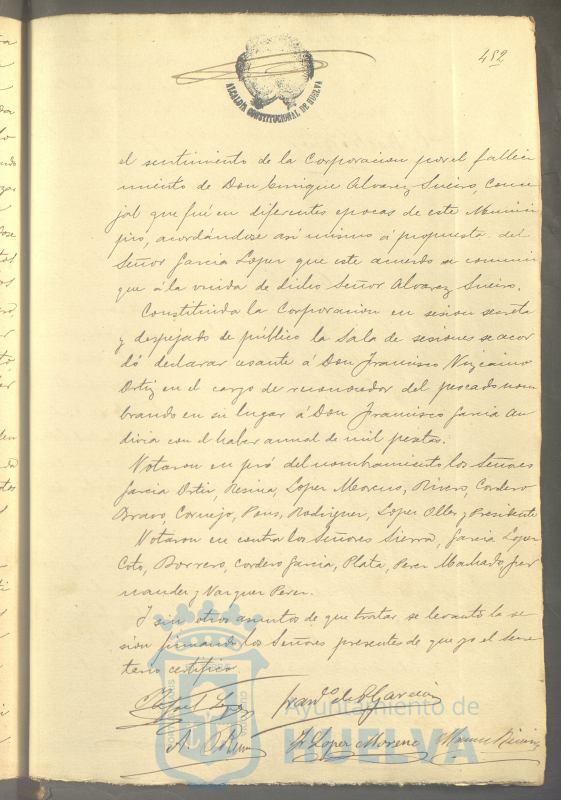 482
ALCALDIA CONSTITUCIONAL DE HUELVA
el sentimiento de la Corporacion por el falleci
miento de Don Enrique Alvarez Sueiro, Conce
jal que fué en diferentes epocas de este Munici
pio, acordándose asi mismo á propuesta del
Señor Garcia Lopez que este acuerdo se comuni
que á la viuda de dicho Señor Alvarez Sueiro.
Constituida la Corporacion en sesion secreta
y despejado de público la Sala de sesiones se acor
dó declarar cesante á Don Francisco Vizcaino
Ortiz en el cargo de reconocedor del pescado nom
brando en su lugar á Don Francisco Garcia An
divia con el haber anual de mil pesetas.
Votaron en pró del nombramiento los Señores
Garcia Ortiz, Resina, Lopez Moreno, Rivero, Cordero
Bravo, Cornejo, Pons, Rodriguez, Lopez Oller y Presidente
Votaron en contra los Señores Sierra, Garcia Lopez
Coto, Borrero, Cordero Garcia, Plata, Perez Machado, Fer
nandez y Vazquez Perez.
Y sin otros asuntos de que tratar se levantó la se
sion firmando los Señores presentes de que yo el Secre
tario certifico.
Garcia
J. Lopez Moreno
Ayuntamiento de
HUELVA